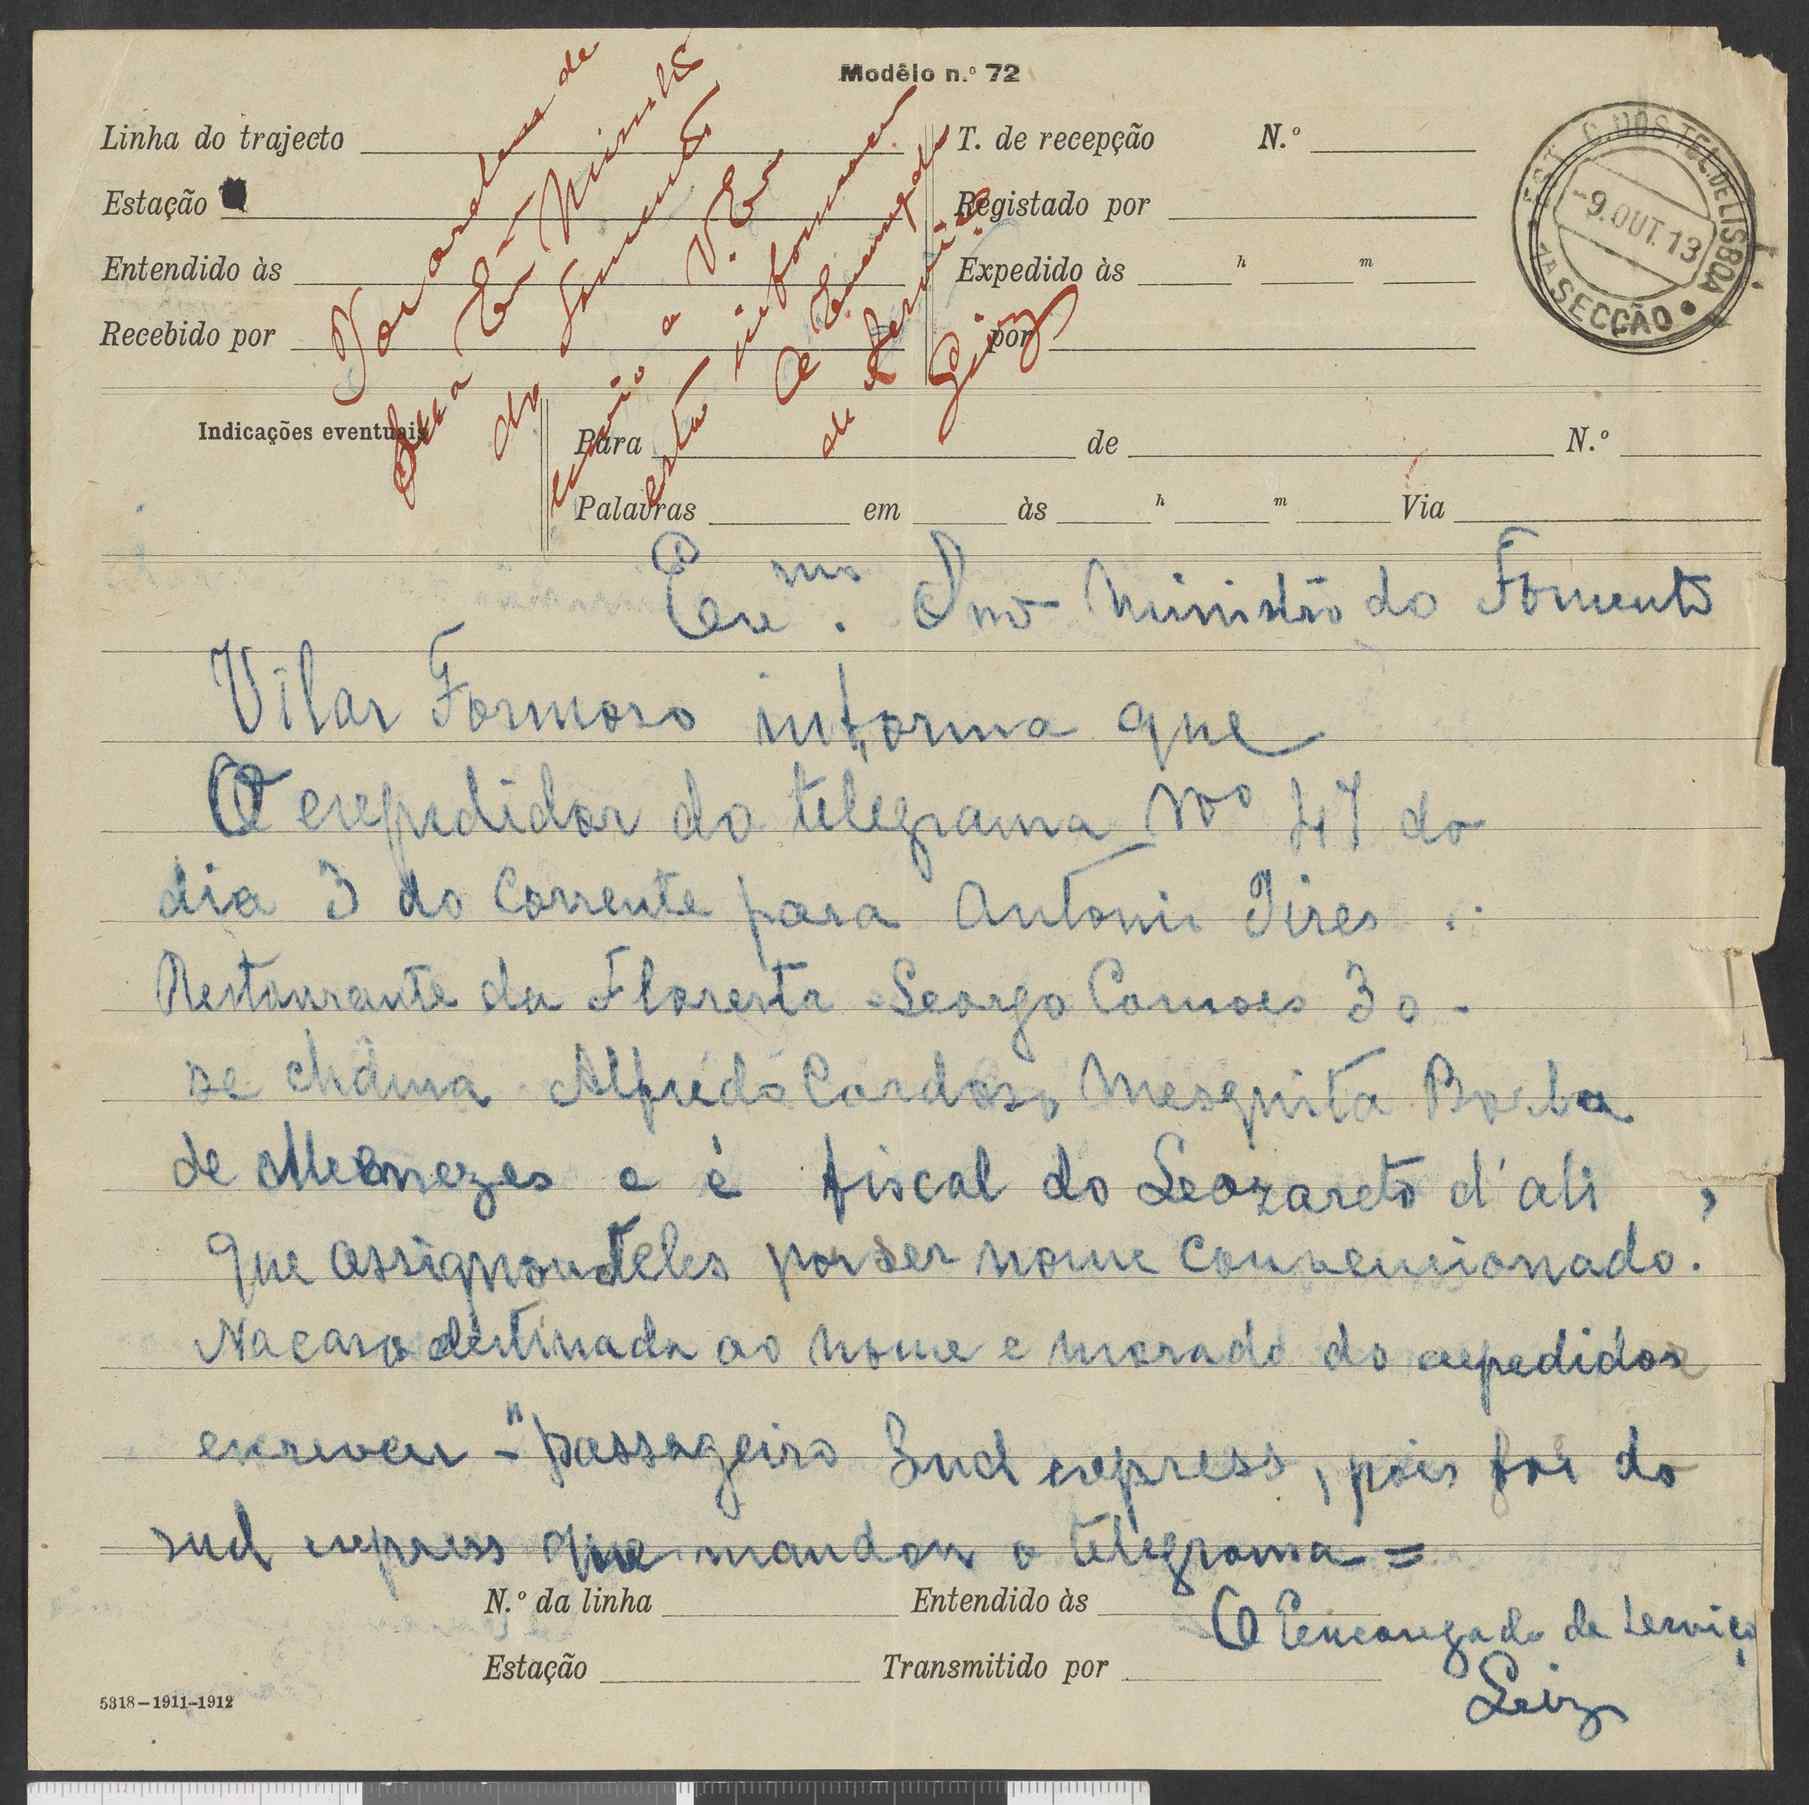 Modêlo n.º 72
Linha do trajecto
Estação
Entendido às
Recebido por
T. de recepção N.º
Registado por
Expedido às h m
por
EST. C. DOS TEL. DE LISBOA
-9.OUT.13
7ª SECÇÃO
Por ordem de
Sua Exª Ministro
do Fomento
envio a V. Exª
esta informação
O Encarregado
de Serviço
Luiz
Indicações eventuais
Para de N.º
Palavras em às h m Via
Exe mo. Snr Ministro do Fomento
Vilar Formoso informa que
O expedidor do telegrama Nº 47 do
dia 3 do Corrente para Antonio Pires
Restaurante da Floresta Largo Camoes 30 -
se chama Alfredo Cardoso Mesquita Borba
de Menezes e é fiscal do Lazareto d'ali,
que assignou Teles por ser nome convencionado.
Na casa destinada ao nome e morada do expedidor
escreveu - "passageiro Sud express, pois foi do
sud express que mandou o telegrama =
N.º da linha Entendido às
O Encarregado de Serviço
Estação Transmitido por
Luiz
5318-1911-1912